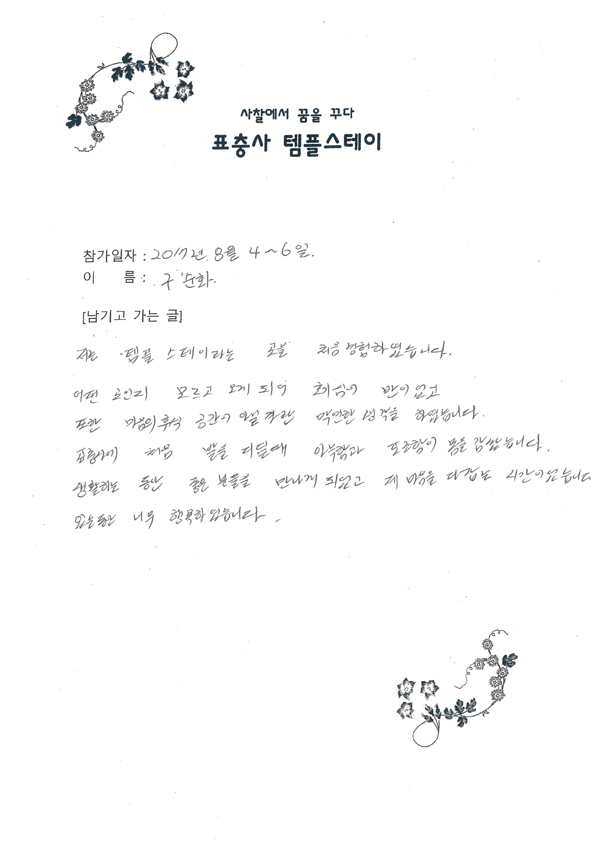 사찰에서 꿈을 꾸다
표충사 템플스테이
참가일자 : 2017년 8월 4~6일.
이 름 : 구순화.
[남기고 가는 글]
저는 템플 스테이라는 곳을 처음 경험하였습니다.
어떤 곳인지 모르고 오게 되어 회심이 많이 있고
또한 마음의 휴식 공간이 될 막연한 생각을 하였습니다.
표충사에 처음 발을 디딜때 아늑함과 포근함이 몸을 감쌌습니다.
생활하는 동안 좋은 분들을 만나게 되었고 제 마음을 다잡는 시간이었습니다
있는동안 너무 행복하였습니다.